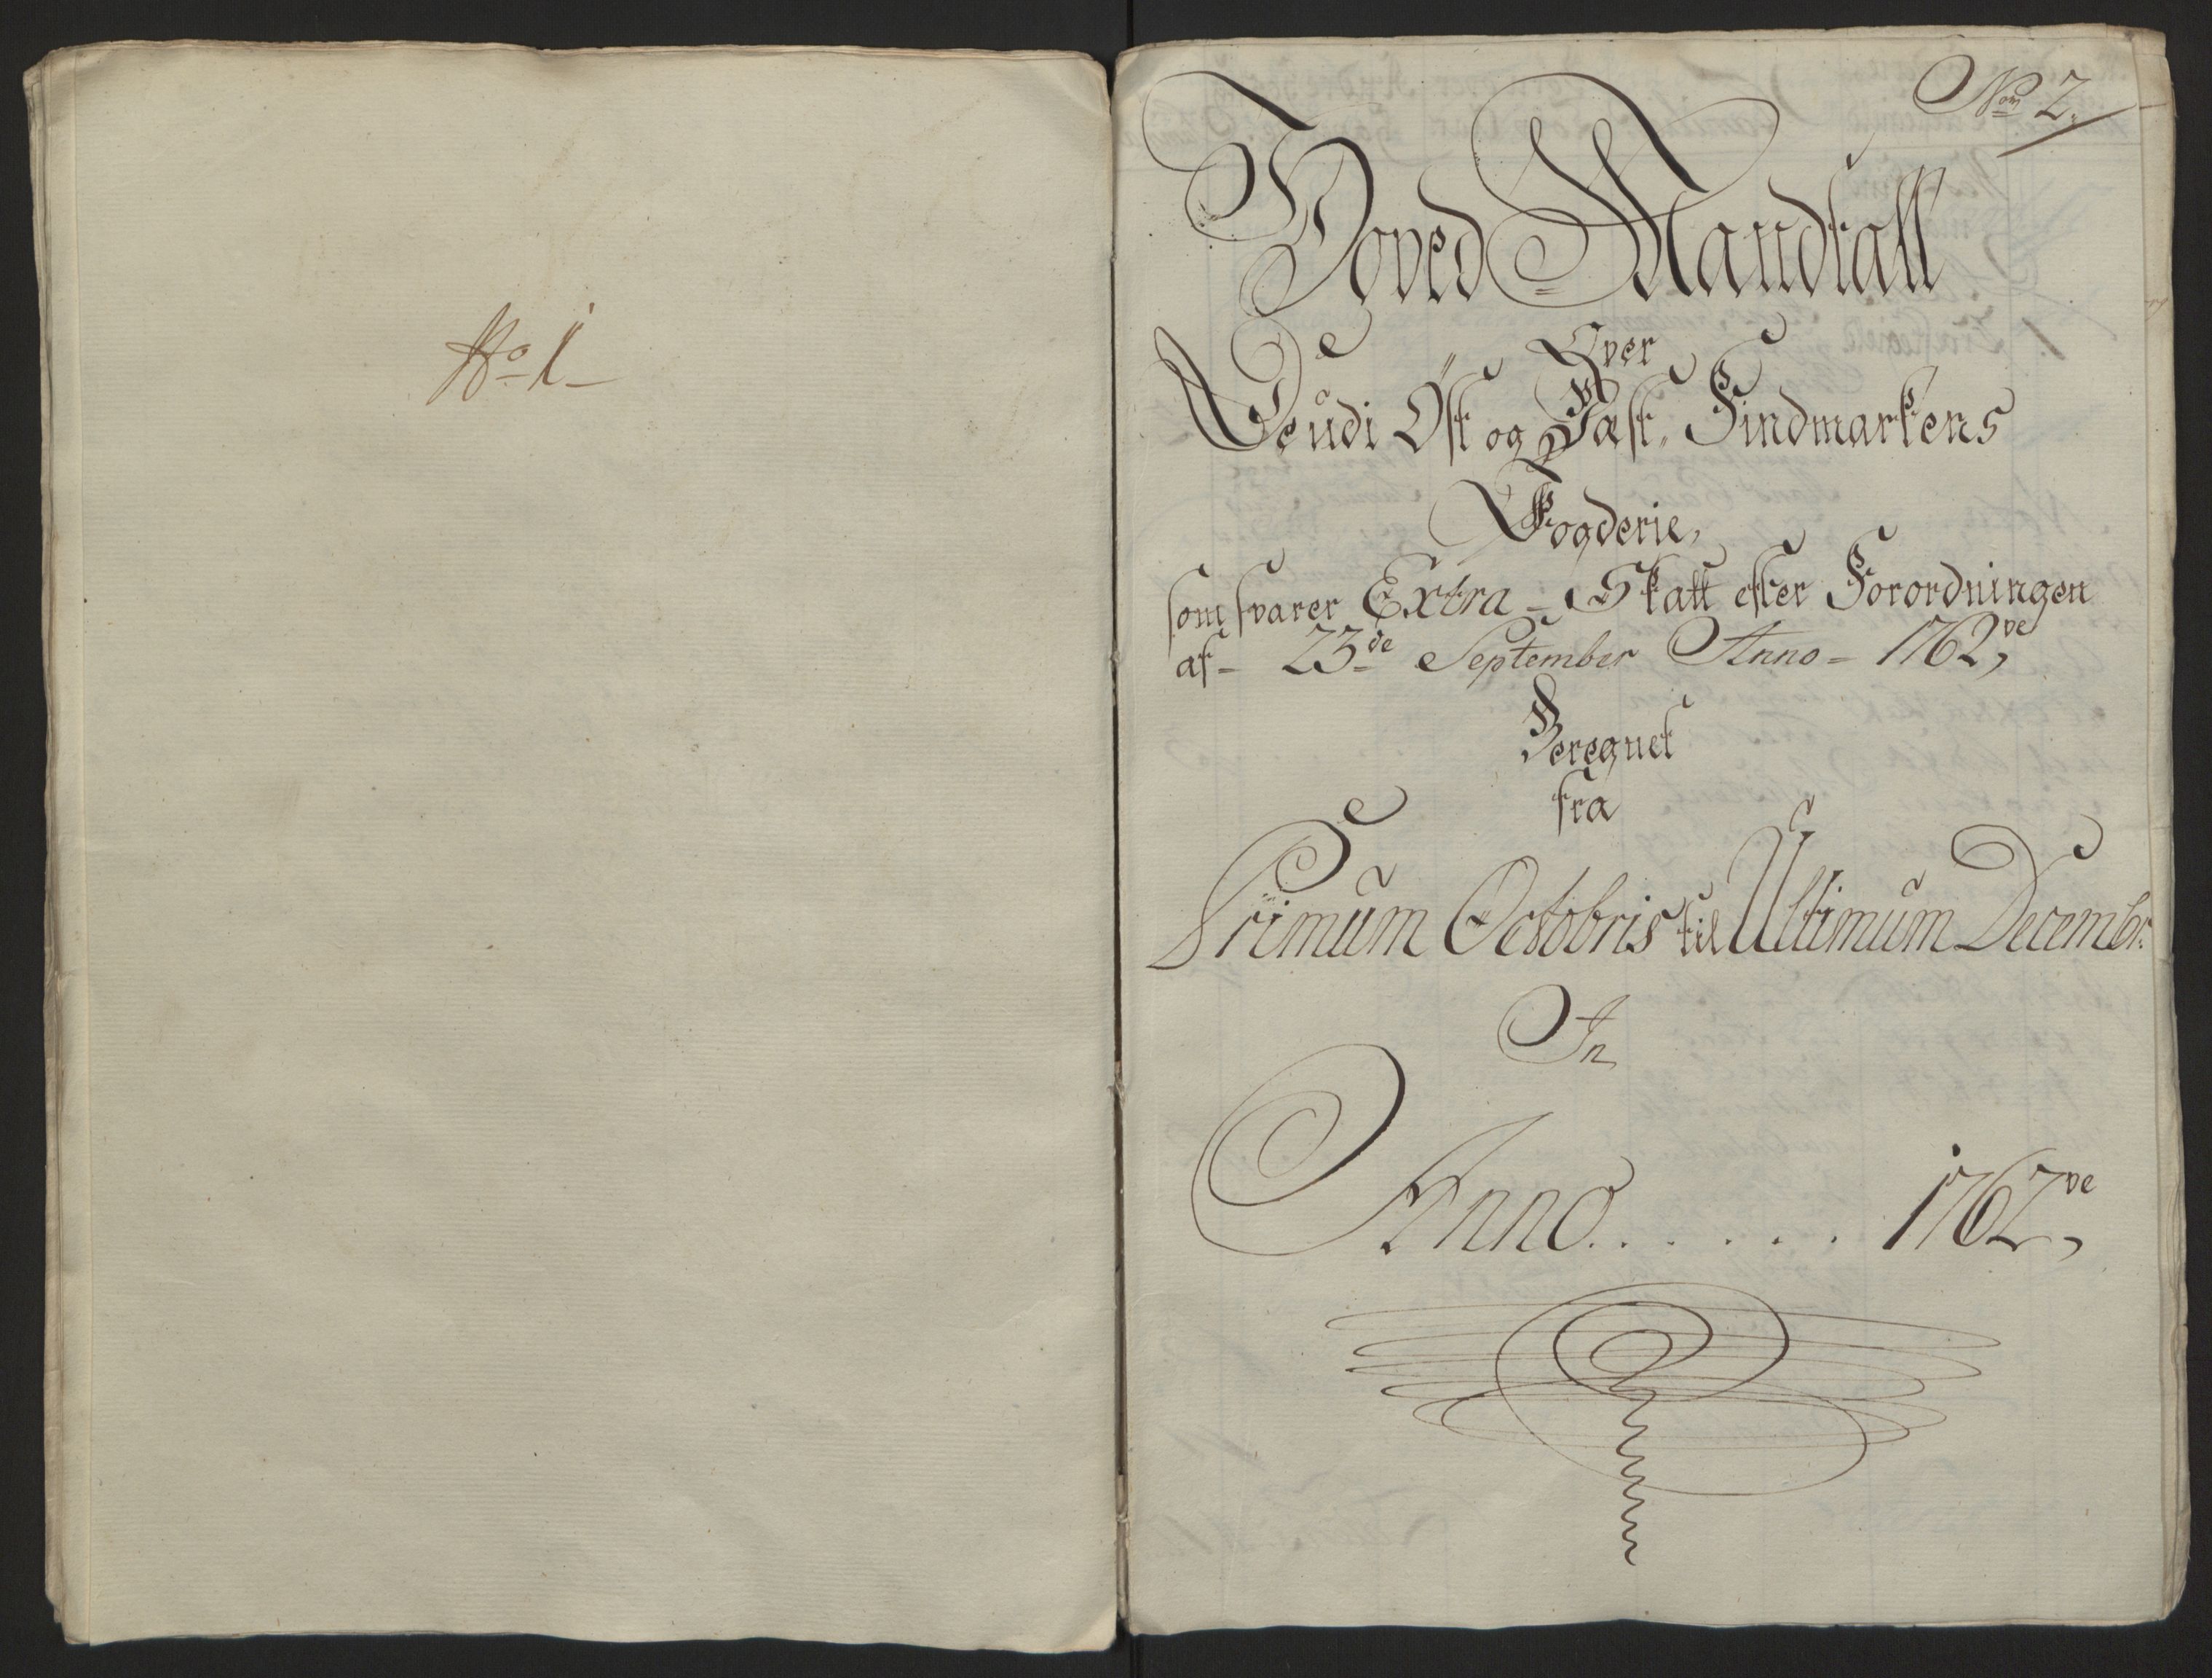 No 1
Nom 2.
Hoved-Mandtall
Over
De udi Øst og Væst Findmarkens
Fogderie,
som svarer Extra-Skatt efter Forordningen
af 23de September Anno 1762de,
Beregnet
fra
Primum Octobris til Ultimum Decembr:
In
Anno...... 1762de,